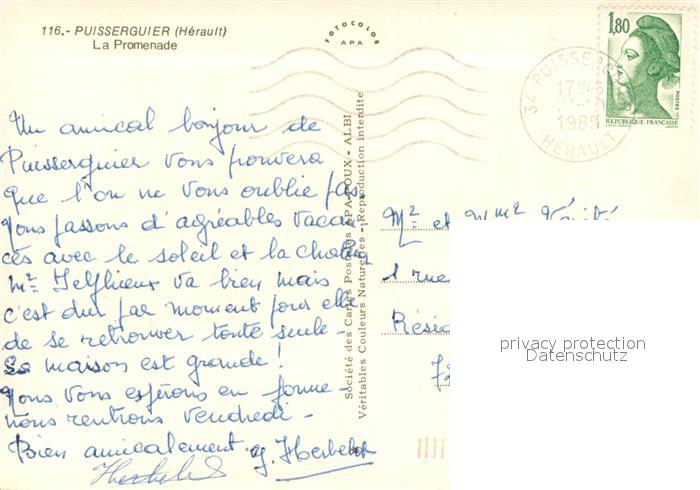 116.- PUISSERGUIER (Hérault)
La Promenade
FOTOCOLOR
APA
1,80
POSTES
REPUBLIQUE FRANÇAISE
34 PUISSERG
17 H
1985
HERAULT
Un amical bonjour de
Puisserguier vous prouvera
que l'on ne vous oublie pas
Nous passons d'agréables vacan
ces avec le soleil et la chaleur
va bien mais
c'est dur par moment pour elle
de se retrouver toute seule -
Sa maison est grande !
Nous vous espérons en forme -
nous rentrons vendredi -
Bien amicalement
Société des Cartes Postales APA-POUX - ALBI
Véritables Couleurs Naturelles - Reproduction interdite
Mr et Mme
1 rue
Rési
privacy protection
Datenschutz